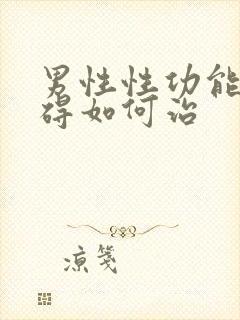 男性性功能
碍如何治
凉笺